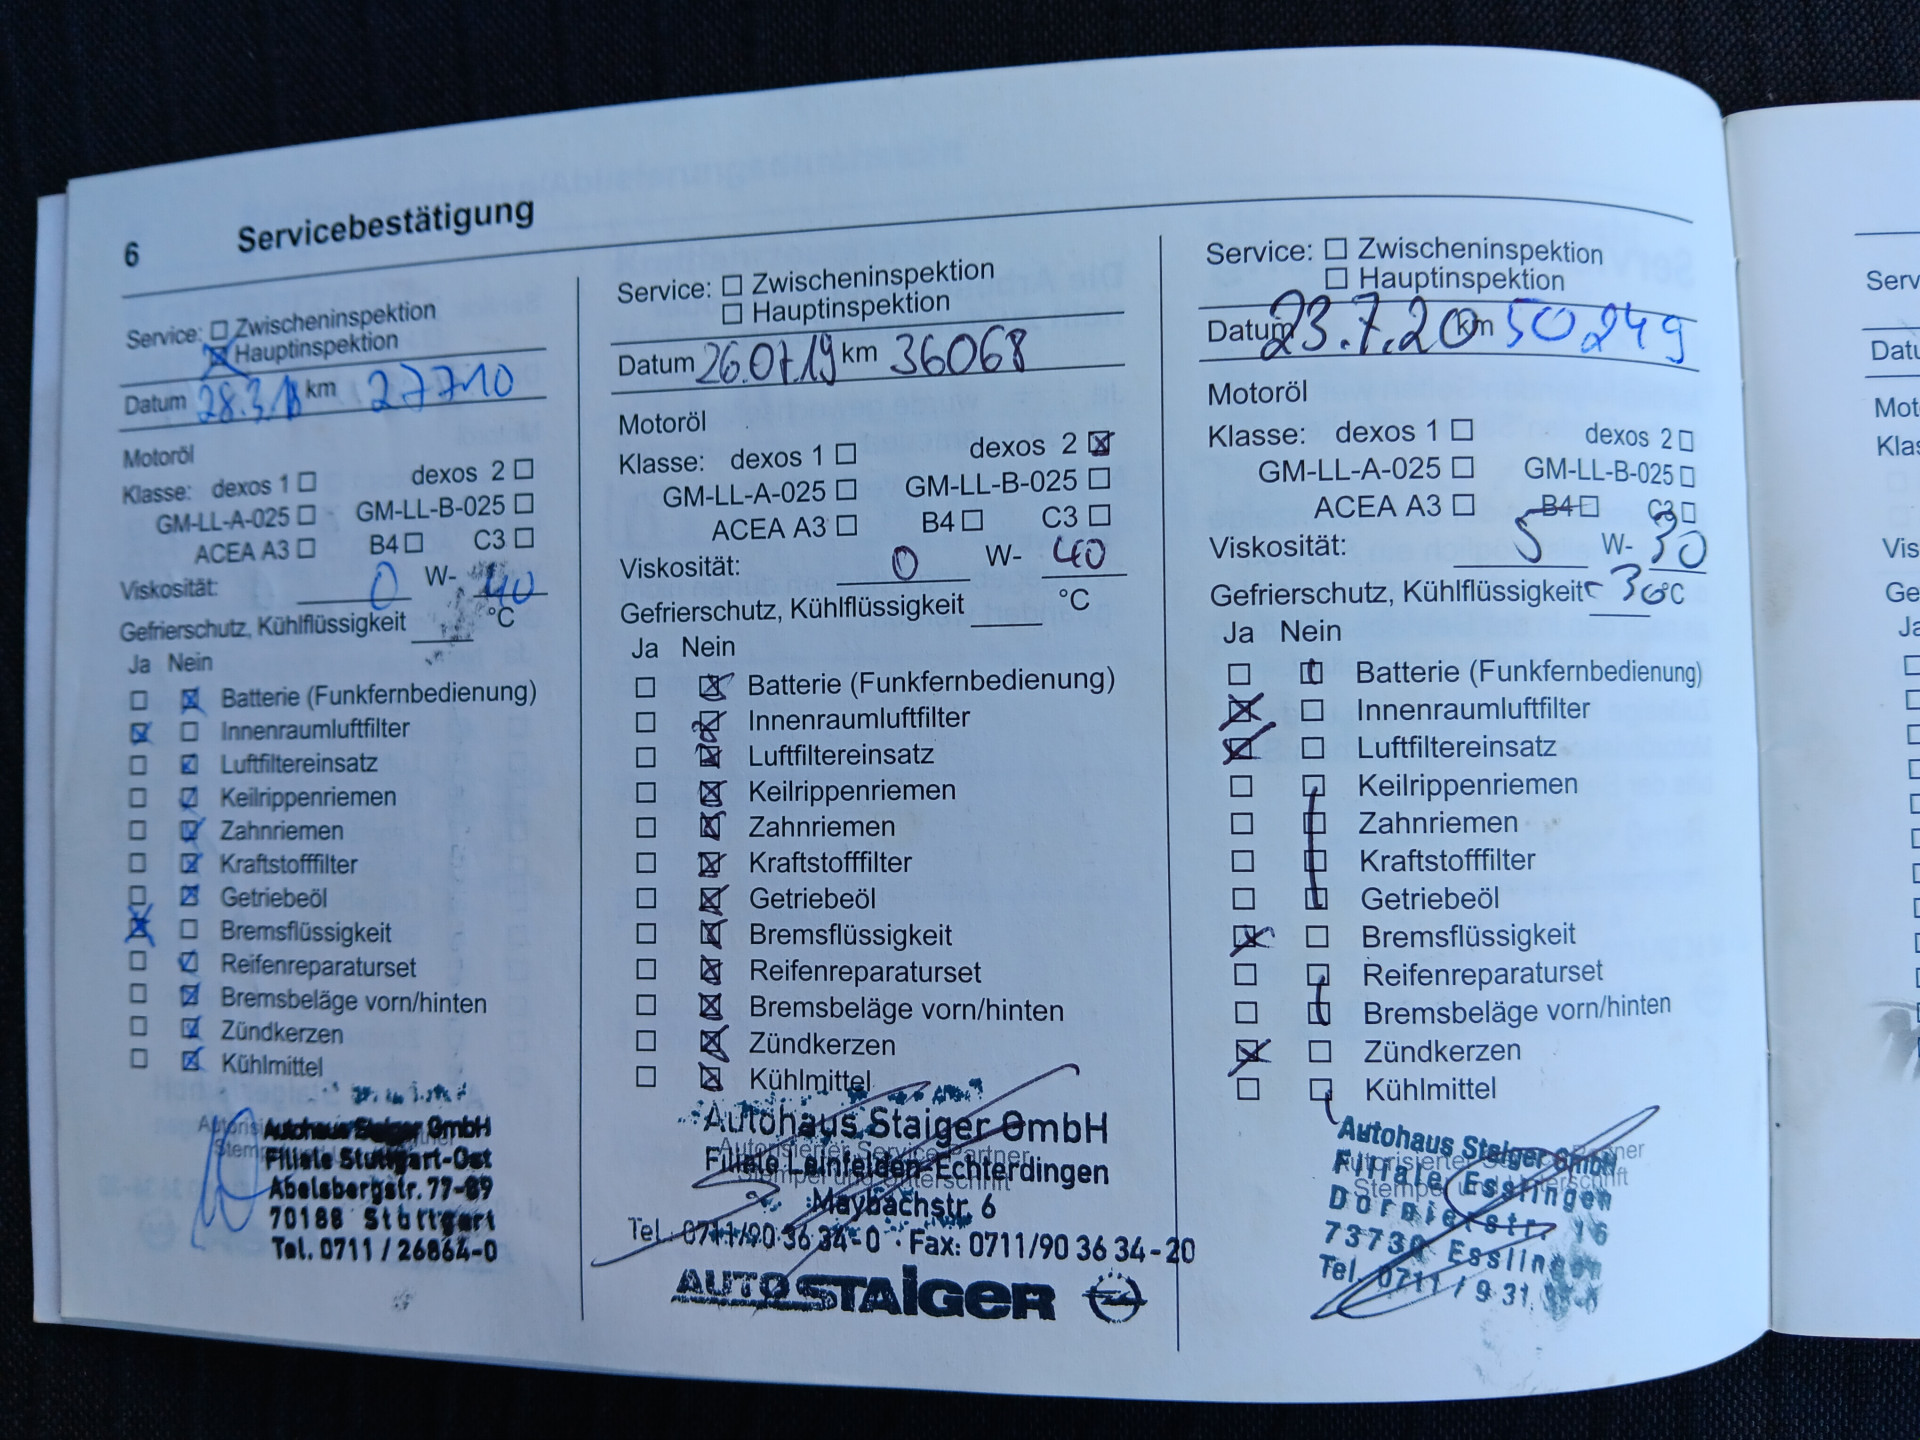 6 Servicebestätigung
Service: Zwischeninspektion
Hauptinspektion
Datum 28.3.18 km 27710
Motoröl
Klasse: dexos 1 dexos 2
GM-LL-A-025 GM-LL-B-025
ACEA A3 B4 C3
Viskosität: 0 W- 40
Gefrierschutz, Kühlflüssigkeit °C
Ja Nein
Batterie (Funkfernbedienung)
Innenraumluftfilter
Luftfiltereinsatz
Keilrippenriemen
Zahnriemen
Kraftstofffilter
Getriebeöl
Bremsflüssigkeit
Reifenreparaturset
Bremsbeläge vorn/hinten
Zündkerzen
Kühlmittel
Autohaus Staiger GmbH
Filiale Stuttgart-Ost
Abelsbergstr. 77-89
70188 Stuttgart
Tel. 0711 / 26864-0
Service: Zwischeninspektion
Hauptinspektion
Datum 26.07.19 km 36068
Motoröl
Klasse: dexos 1 dexos 2
GM-LL-A-025 GM-LL-B-025
ACEA A3 B4 C3
Viskosität: 0 W- 40
Gefrierschutz, Kühlflüssigkeit °C
Ja Nein
Batterie (Funkfernbedienung)
Innenraumluftfilter
Luftfiltereinsatz
Keilrippenriemen
Zahnriemen
Kraftstofffilter
Getriebeöl
Bremsflüssigkeit
Reifenreparaturset
Bremsbeläge vorn/hinten
Zündkerzen
Kühlmittel
Autohaus Staiger GmbH
Autorisierter Service Partner
Filiale Leinfelden-Echterdingen
Stempel und Unterschrift
Maybachstr. 6
Tel. 0711/90 36 34-0 · Fax: 0711/90 36 34-20
AUTO STAIGER
Service: Zwischeninspektion
Hauptinspektion
Datum 23.7.20 km 50249
Motoröl
Klasse: dexos 1 dexos 2
GM-LL-A-025 GM-LL-B-025
ACEA A3 B4 C3
Viskosität: 5 W- 30
Gefrierschutz, Kühlflüssigkeit -30 °C
Ja Nein
Batterie (Funkfernbedienung)
Innenraumluftfilter
Luftfiltereinsatz
Keilrippenriemen
Zahnriemen
Kraftstofffilter
Getriebeöl
Bremsflüssigkeit
Reifenreparaturset
Bremsbeläge vorn/hinten
Zündkerzen
Kühlmittel
Autohaus Staiger GmbH
Filiale Esslingen
Dornierstr. 16
Esslingen
Tel. 0711 / 9 31
Serv
Datu
Mot
Klas
Vis
Ge
Ja